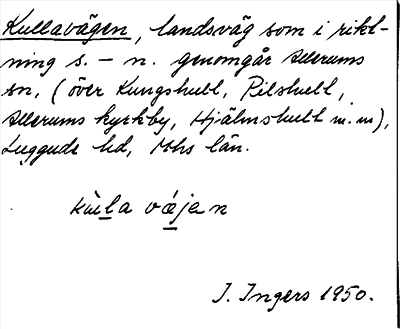 Kullavägen, landsväg som i rikt-
ning s. - n. genomgår Allerums
sn, (över Kungshult, Pilshult,
Allerums kyrkby, Hjälmshult m.m),
Luggude hd, Mhs län.
kùlla vä́jen
I. Ingers 1950.